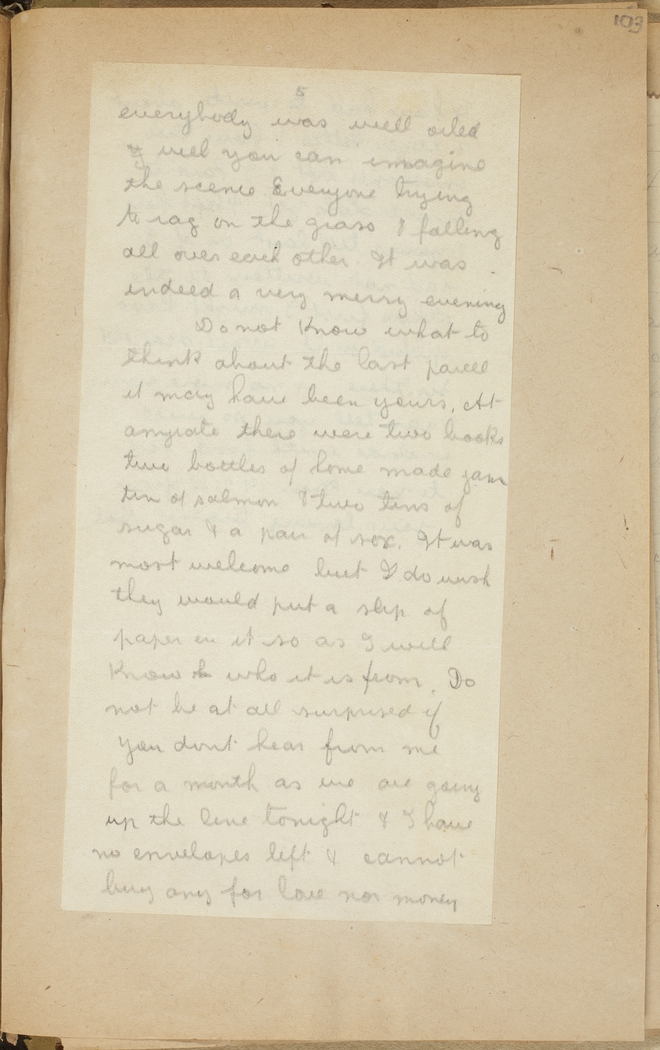 103
5
everybody was well oiled
& well you can imagine
the scene Everyone trying
to rag on the grass & falling
all over each other. It was
indeed a very merry evening
Do not know what to
think about the last parcel
it may have been yours. At
anyrate there were two books
two bottles of home made jam
tin of salmon & two tins of
sugar & a pair of sox. It was
most welcome but I do wish
they would put a slip of
paper in it so as I will
know who it is from. Do
not be at all surprised if
you dont hear from me
for a month as we are going
up the line tonight & I have
no envelopes left & cannot
buy any for love nor money